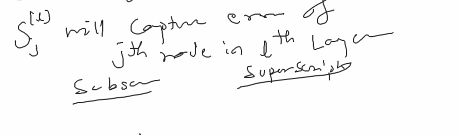 δ_j^[l] will capture error of
jth node in lth Layer
Subscr Superscript